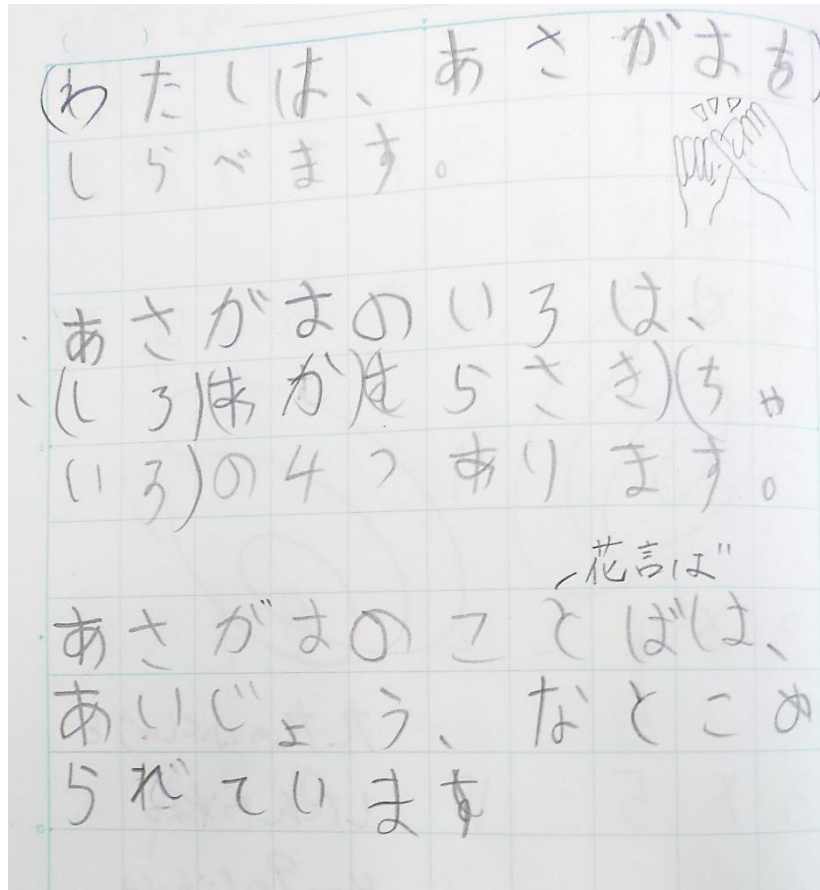 (わたしは、あさがおを)
しらべます。
あさがおのいろは、
(しろ)(あか)(むらさき)(ちゃ
いろ)の4つあります。
花言ば
あさがおのことばは、
あいじょう、なとこめ
られています